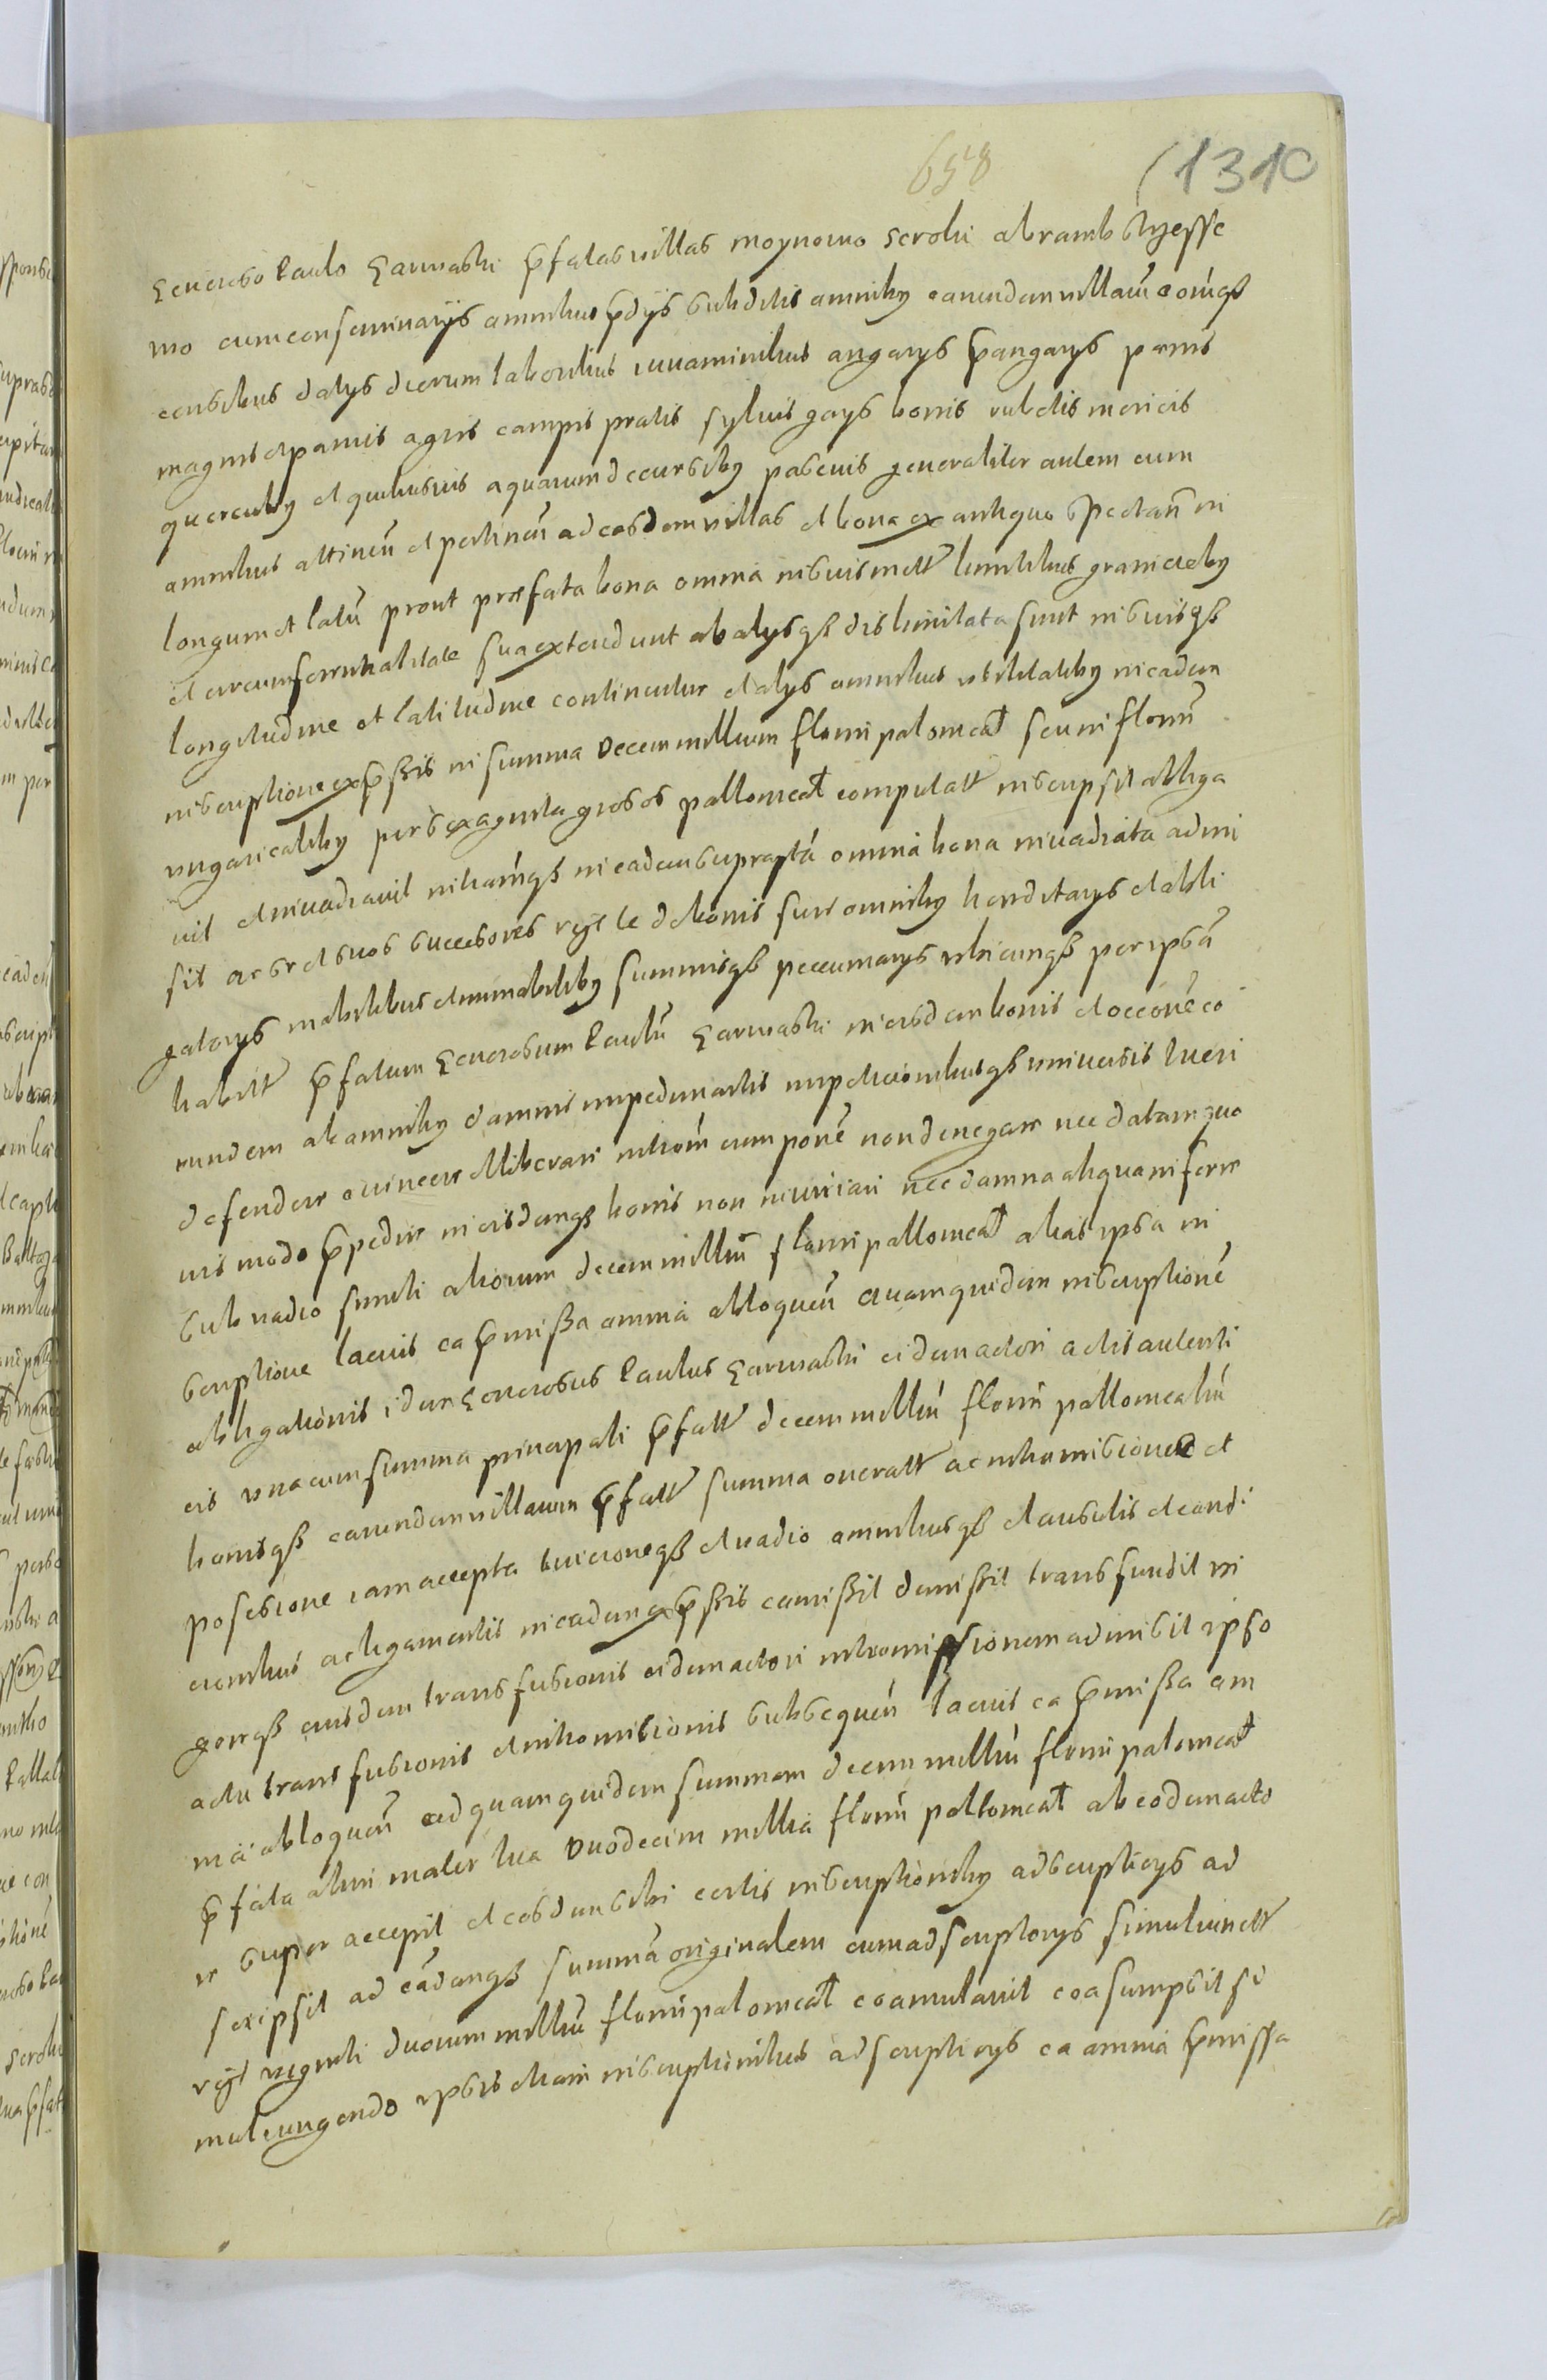 658 (1310
Generoso Paulo Garwaski p̃fatas villas moynowo seroki abramb Wyesse
wo cum conseminarys omnibus p̃dys subditis omniby earundem villarũ eorũqß
censibus datys dierum laboribus iuvaminibus angarys p̃angarys parvis
magnis et parvis agris campis pratis sylvis gays borris rubetis mericis
quercuby et quibusvis aquarum decursiby pascuis generaliter autem cum
omnibus attineñ et pertineñ ad easdem villas et bona ex antiquo spectañ in
longum et latũ prout præfata bona omnia in suis mett limitibus granicieby
et circumferentialitate sua extendunt ab alysqß dislimitata sunt in suisqß
longitudine et latitudine continentur et alys omnibus utilitatiby in eadem
inscriptione exp̃ssis in summa Decem millium floren̄ polonical seu in floreñ
ungaricaliby per sexaginta grosos pollonicał computatt inscripsit obliga
vit et invadiavit in bonisqß in eadem suprascripta omnia bona invadiata admi
sit ac se et suos successores regit de bonis suis omniby hereditarys et obli
gatorys mobilibus et immobiliby summisqß pecuniarys ubicunqß per ipsũ
habitt p̃fatum Generosum Paulũ Garwaski in eisdem bonis et occonē eo
rundem ab omniby damnis impedimentis impeticionibusqß universis tueri
defendere evincere et liberari intromē cum ponē non denegare nec datam quo
vis modo p̃pedire in eisdemqß bonis non iniuriari nec damna aliqua inferre
sub vadio simili aliorum decem milliũ floren̄ pollonicał alias ipsa in
scriptione lacius ea p̃missa omnia obloqueñ quam quidem inscriptionē
obligationis idem Generosus Paulus Garwaski eidem actori actis autenti
cis una cum summa principali p̃fatt decem milliũ floreñ pollonicaliũ
bonisqß earundem villarum p̃fatt summa oneratt ac intromissione et
possessione iam accepta tuicioneqß et vadio omnibusqß clausulis et condi
cionibus ac ligamentis in eadem exp̃ssis comissit demissit transfundit in
gorreqß eiusdem transfusionis eidem actori intromissionem admisit ipso
actu transfusionis et intromissionis subsequeñ lacius ea p̃missa om
nia obloqueñ ad quam quidem summam decem milliũ floren̄ polonicał
p̃fata olim mater tua Duodecim millia floreñ pollonicał ab eodem acto
re super accepit et eosdem sibi certis inscriptioniby adscripticys ad
scripsit ad eãdemqß summã originalem cum adscriptorys simul iunctt
regit viginti duorum milliũ floreñ polonicał coamulavit coasumpsit si
mul iungendo ipsis etiam inscriptionibus adscripticys ea omnia p̃missa